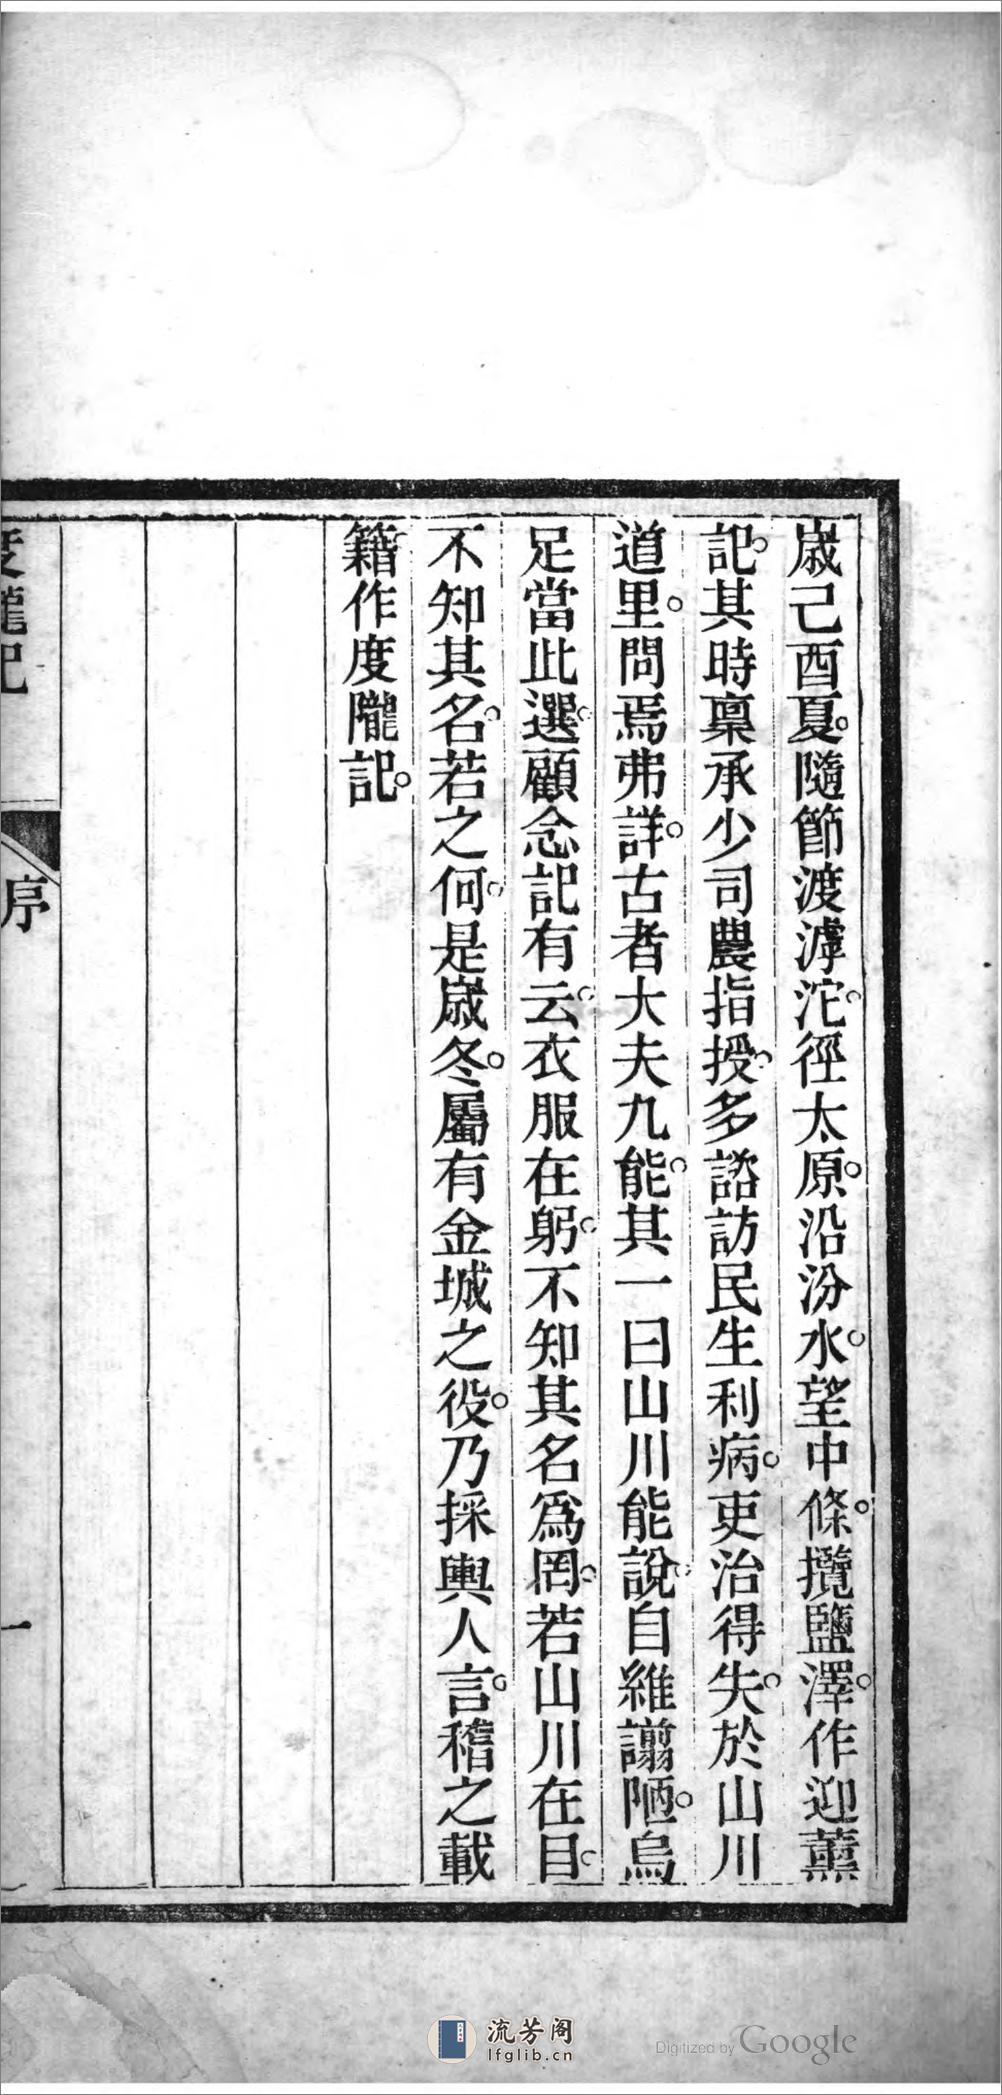 歲己酉夏。隨節渡滹沱。徑太原。沿汾水。望中條。攬鹽澤。作迎薰
記。其時稟承少司農指授。多諮訪民生利病。吏治得失。於山川
道里。問焉弗詳。古者大夫九能。其一曰山川能說。自維謭陋。烏
足當此選。顧念記有云。衣服在躬。不知其名爲罔。若山川在目。
不知其名。若之何。是歲冬。屬有金城之役。乃採輿人言。稽之載
籍作度隴記。
度隴記
序
一
流芳阁
lfglib.cn
Digitized by Google